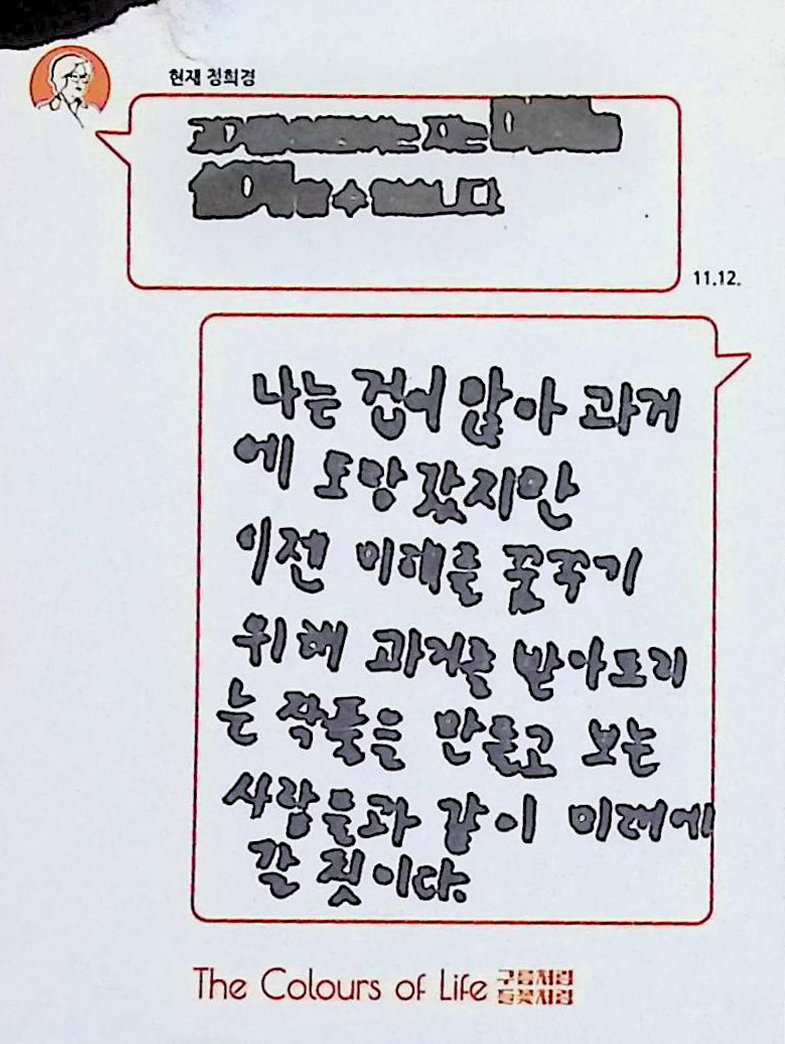 현재 정희경
자는
수
11.12.
나는 겁이 많아 과거
에 도망갔지만
이젠 미래를 꿈꾸기
위해 과거를 받아드리
는 작품을 만들고 보는
사람들과 같이 미래에
갈 것이다.
The Colours of Life 구름처럼
들꽃처럼